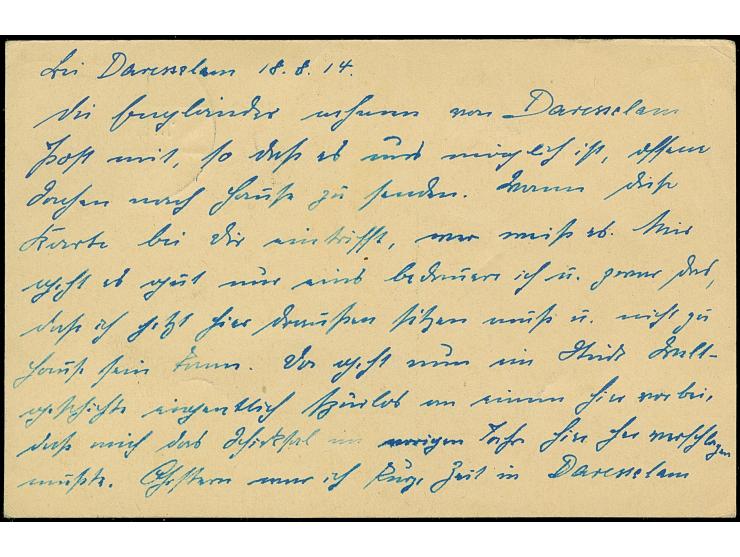 Bei Daresselam 18.8.14.
Die Engländer nehmen von Daresselam
Post mit, so daß es uns möglich ist, offene
Sachen nach Hause zu senden. Wann diese
Karte bei Dir eintrifft, wer weiß es. Mir
geht es gut nur eins bedauere ich u. zwar das,
daß ich jetzt hier draußen sitzen muß u. nicht zu
Hause sein kann. Da geht nun ein Stück Welt-
geschichte eigentlich spurlos an einem hier vorbei,
daß mich das Schicksal im vorigen Jahr hier her verschlagen
mußte. Gestern war ich kurze Zeit in Daresselam